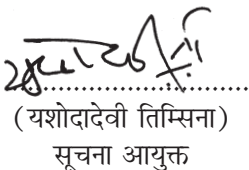 ..............................
(यशोदादेवी तिम्सिना)
सूचना आयुक्त